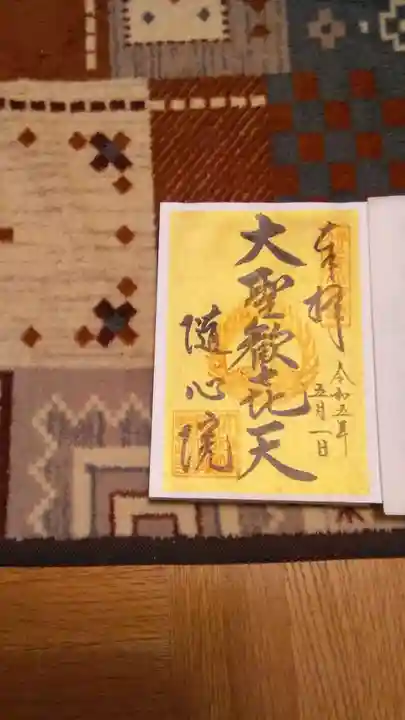 奉拝
令和五年
五月一日
大聖歓喜天
随心院